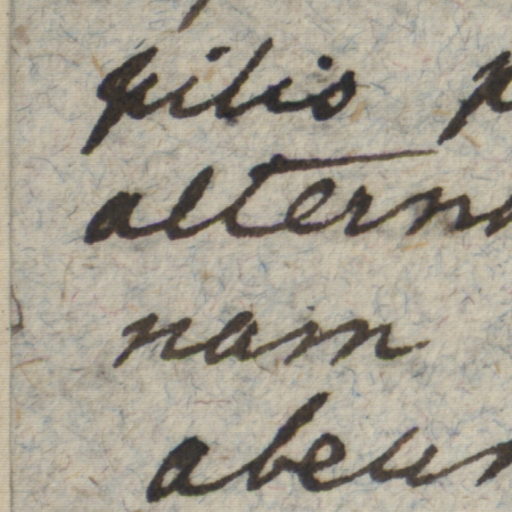 pilis p
altern
nam
abeun